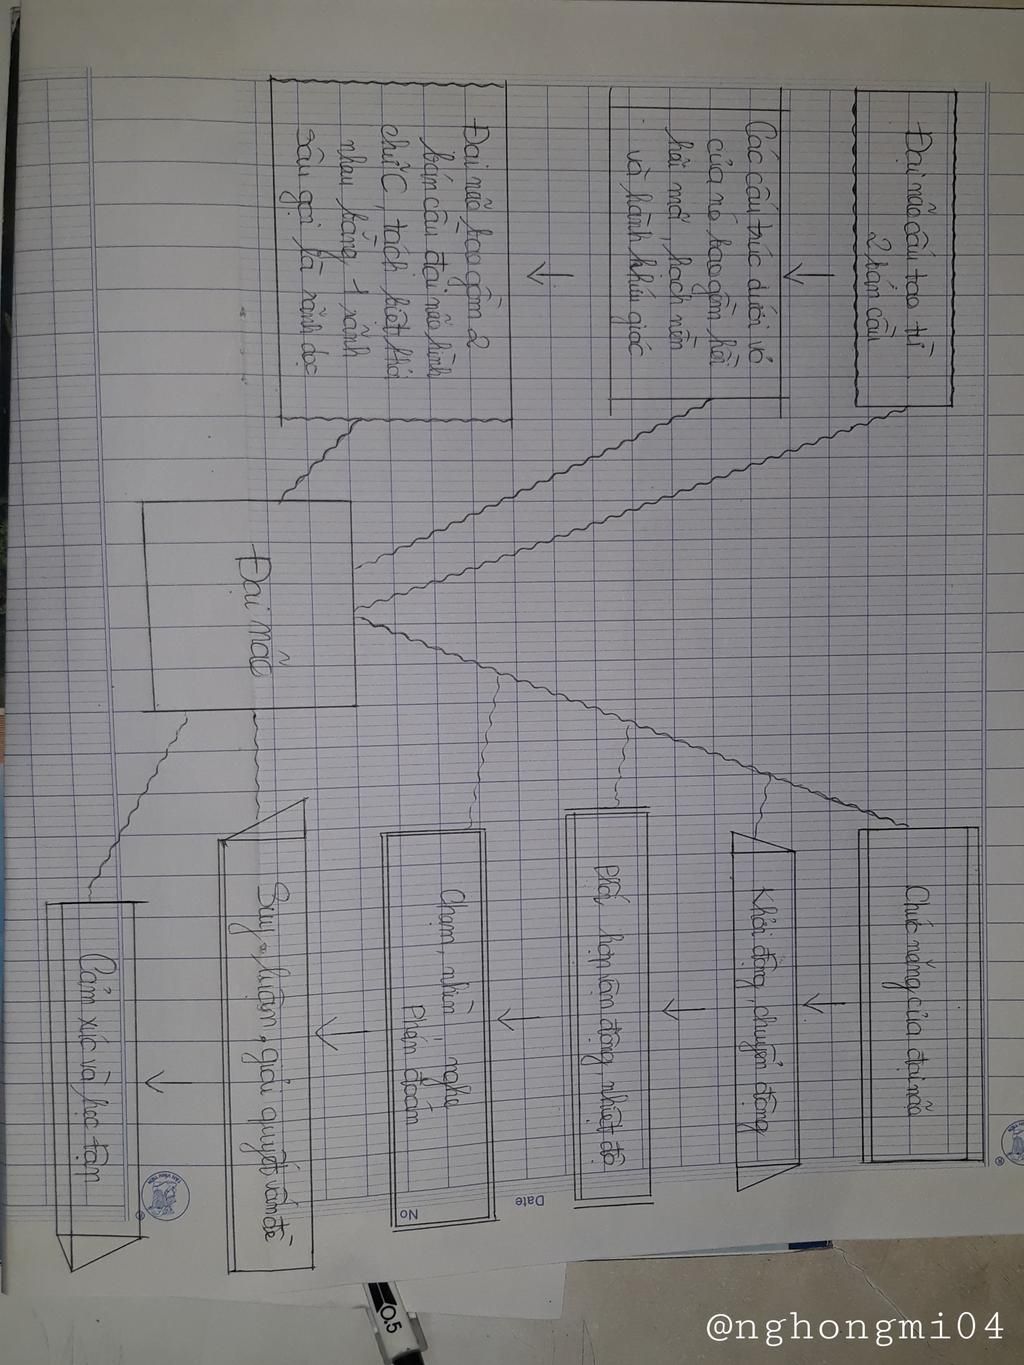 Đại não cấu tạo từ
2 bán cầu
Các cấu trúc dưới vỏ
của nó bao gồm hồi
hải mã, hạch nền
và hành khứu giác
Đại não bao gồm 2
bán cầu đại não hình
chữ C, tách biệt khỏi
nhau bằng 1 rãnh
sâu gọi là rãnh dọc
Đại não
Chức năng của đại não
Khởi động, chuyển động
Phối hợp vận động, nhiệt độ
Chạm, nhìn nghe
Phán đoán
Suy luận, giải quyết vấn đề
Cảm xúc và học tập
Date
No
0.5
@nghongmi04